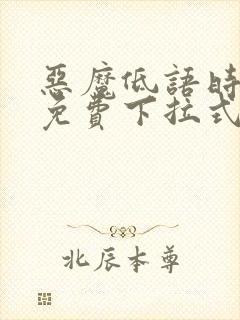 惡魔低語時
免費下拉式
北辰本尊